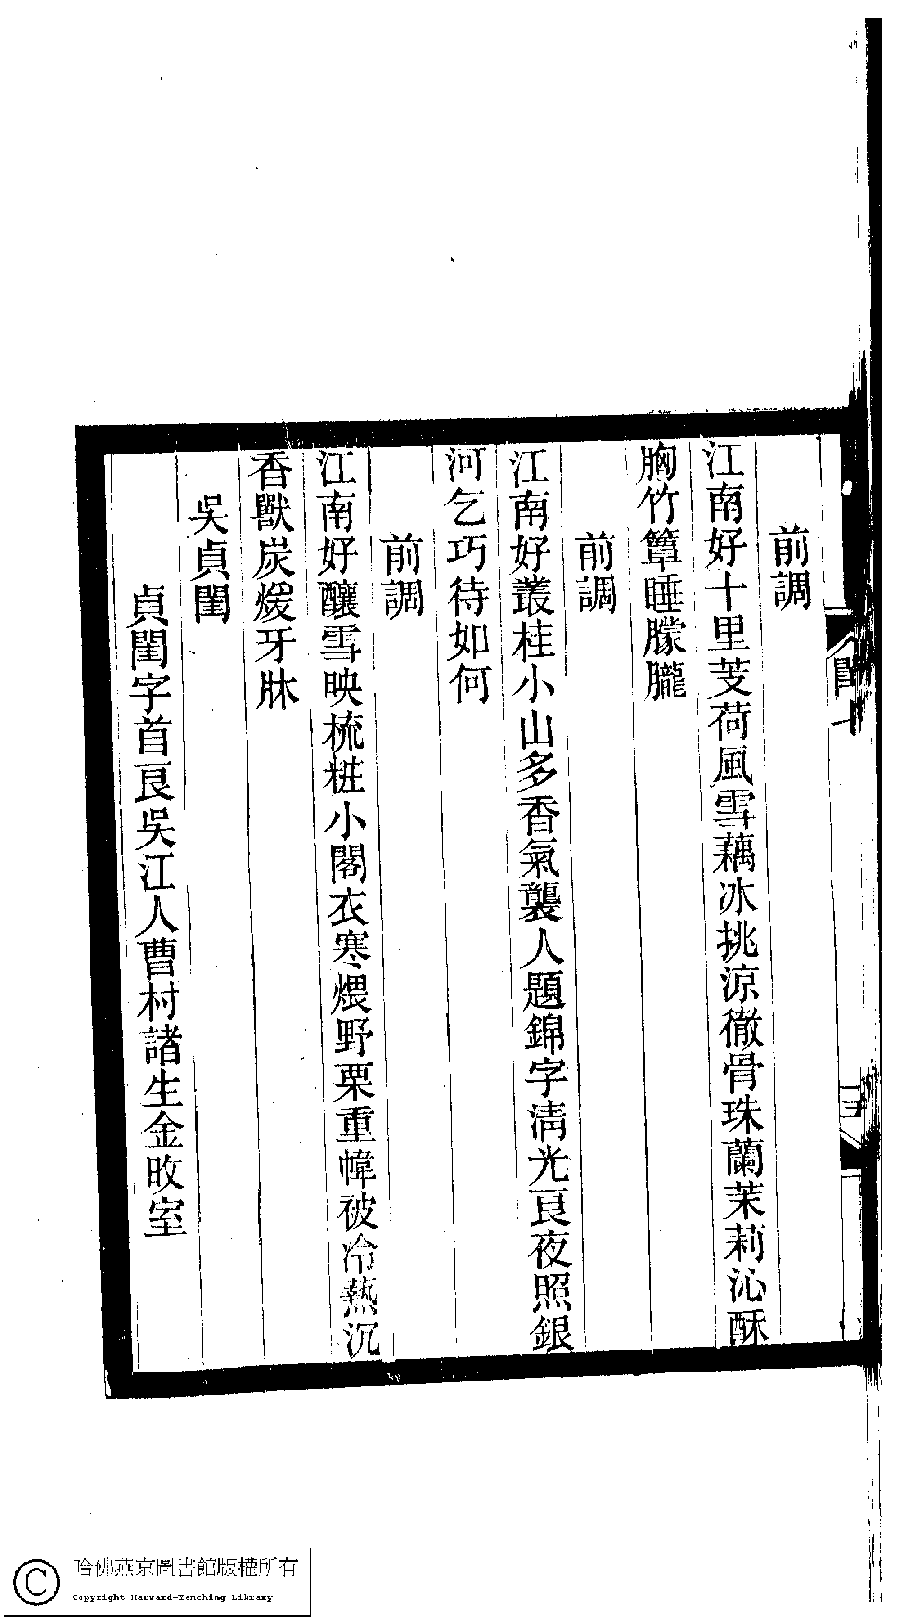 前調
江南好十里芰荷風雪藕冰挑涼徹骨珠蘭茉莉沁酥
胸竹簟睡朦朧
前調
江南好叢桂小山多香氣襲人題錦字清光良夜照銀
河乞巧待如何
前調
江南好釀雪映梳粧小閣衣寒煨野栗重幃被冷熱沉
香獸炭煖牙牀
吳貞閨
貞閨字首良吳江人曹村諸生金敗室
哈佛燕京圖書館版權所有
Copyright Harvard-Yenching Library